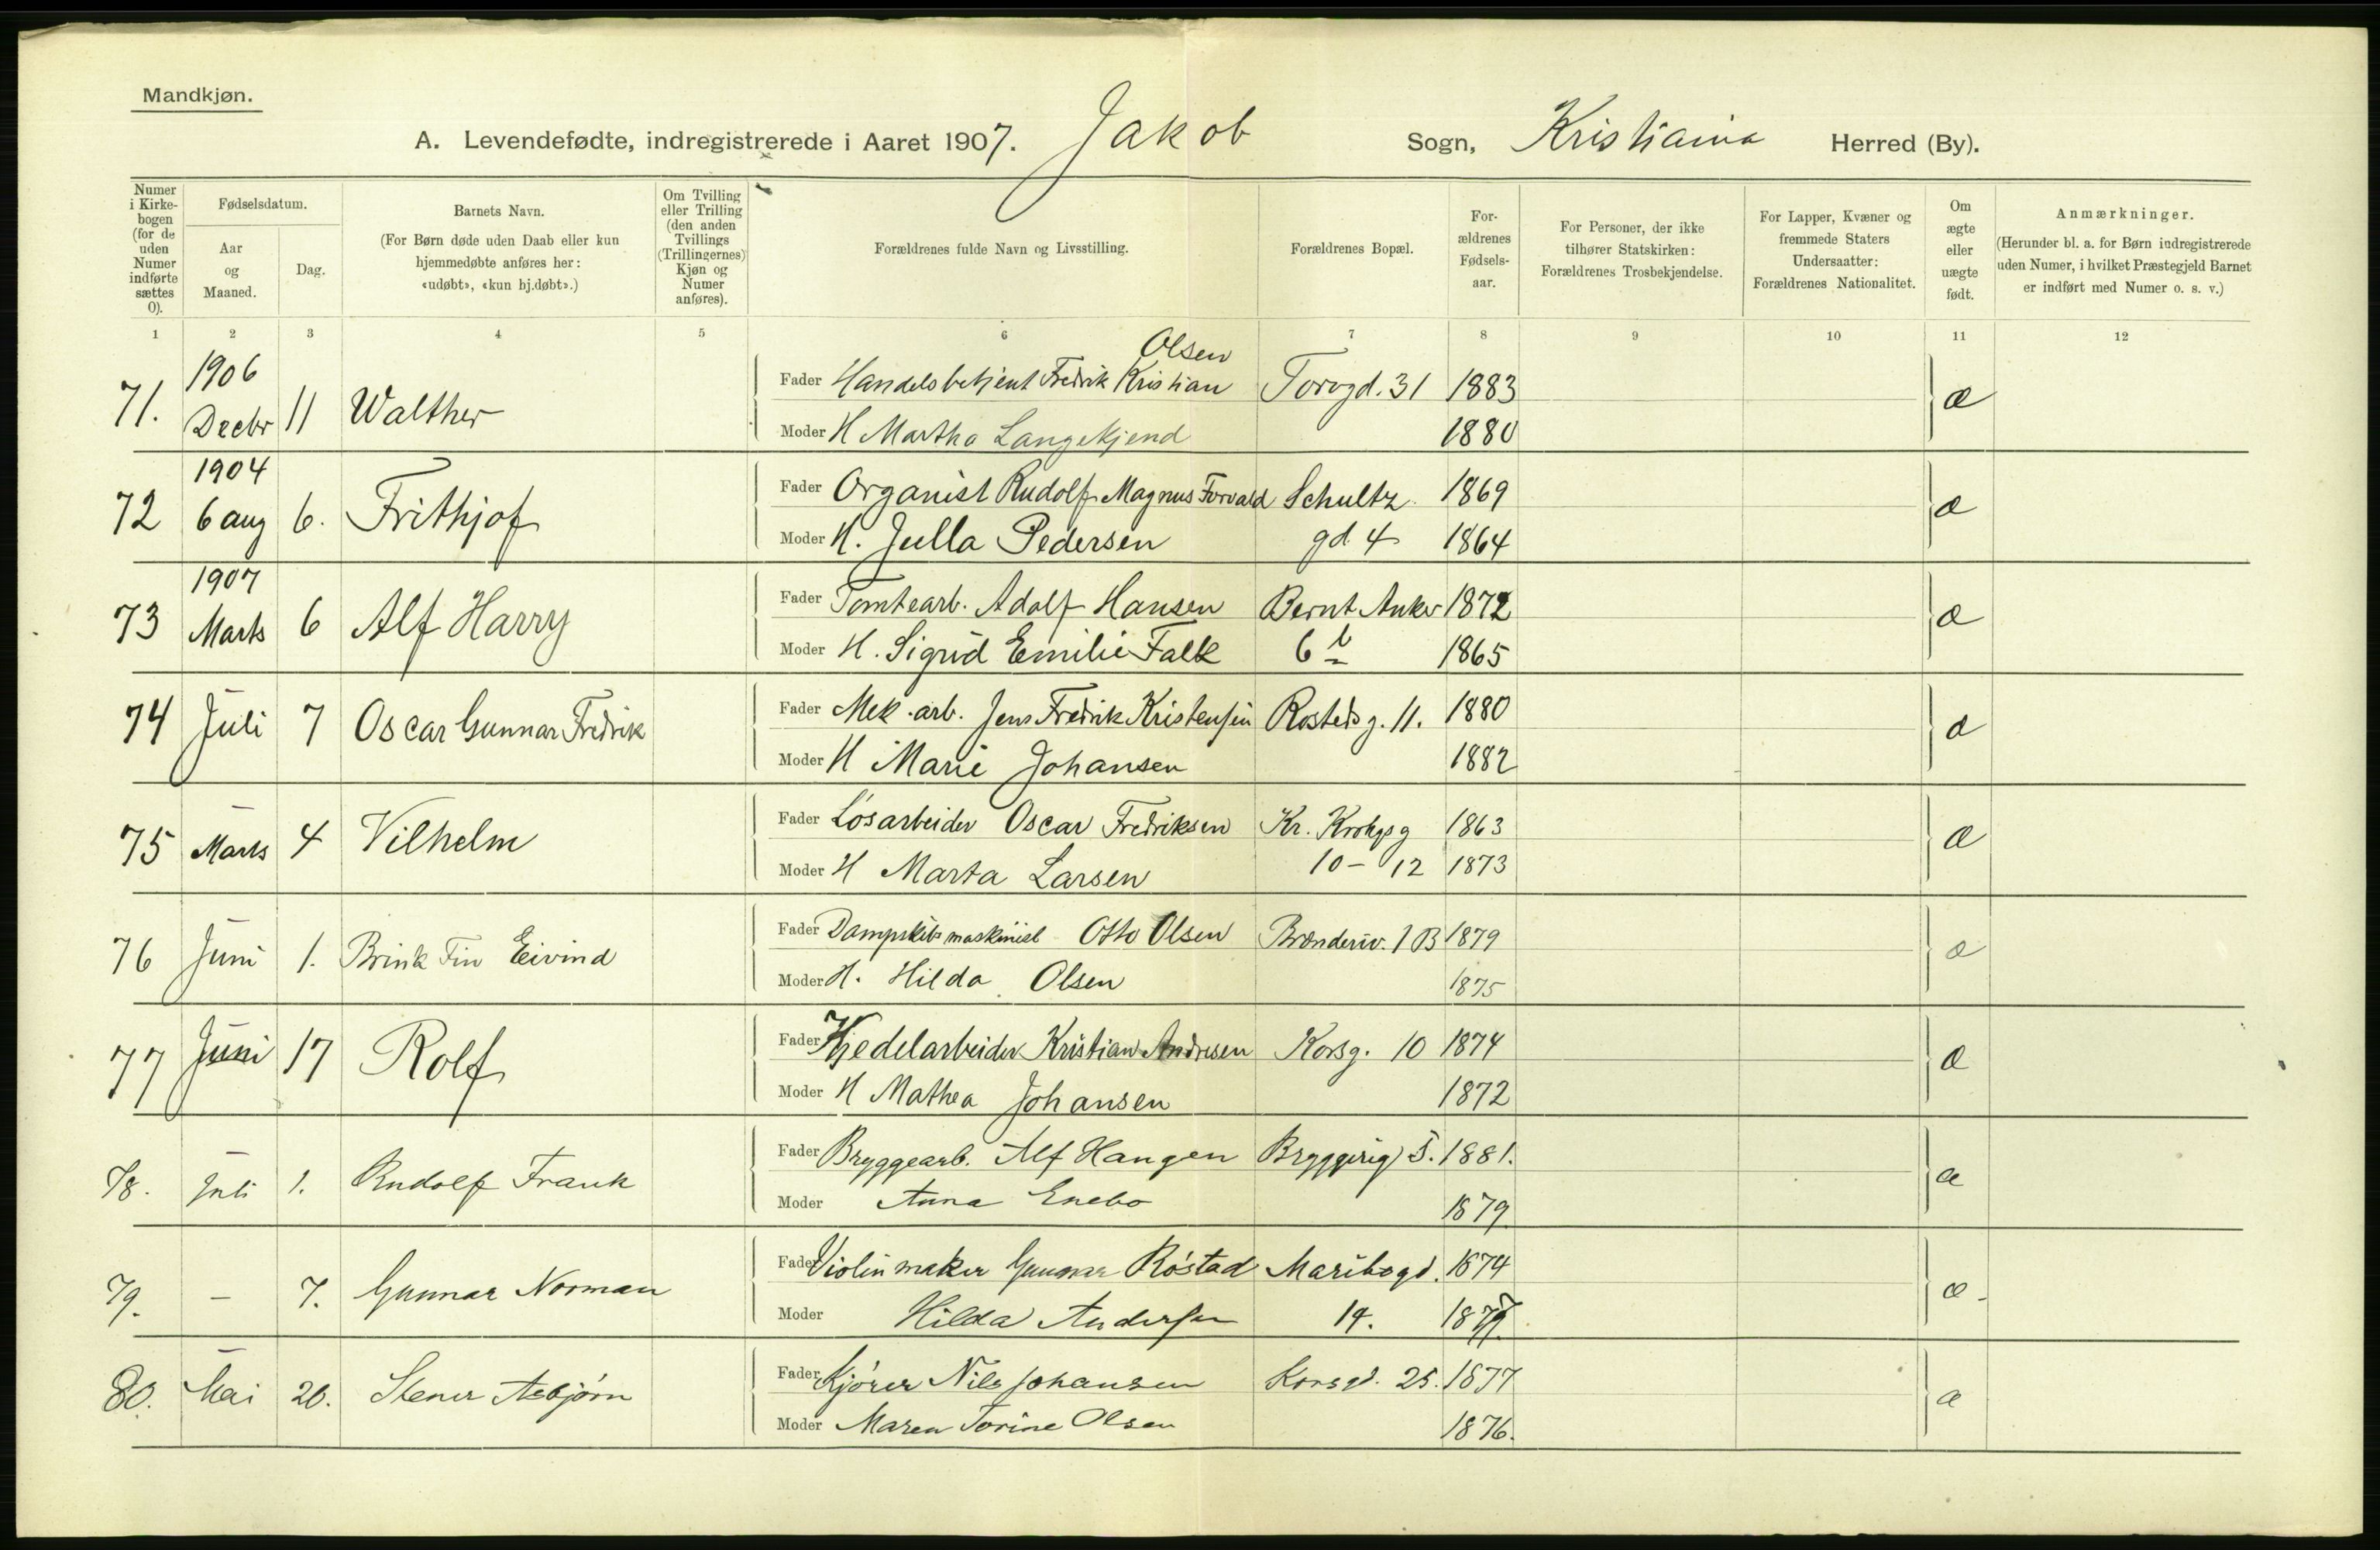 Mandkjøn.
A. Levendefødte, indregistrerede i Aaret 1907. Jakob Sogn, Kristiania Herred (By).
Numer i Kirkebogen (for de uden Numer indførte sættes 0).
Fødselsdatum.
Aar og Maaned.
Dag.
Barnets Navn.
(For Børn døde uden Daab eller kun hjemmedøbte anføres her: «udøbt», «kun hj.døbt».)
Om Tvilling eller Trilling (den anden Tvillings (Trillingernes) Kjøn og Numer anføres).
Forældrenes fulde Navn og Livsstilling.
Forældrenes Bopæl.
Forældrenes Fødselsaar.
For Personer, der ikke tilhører Statskirken: Forældrenes Trosbekjendelse.
For Lapper, Kvæner og fremmede Staters Undersaatter: Forældrenes Nationalitet.
Om ægte eller uægte født.
Anmærkninger.
(Herunder bl. a. for Børn indregistrerede uden Numer, i hvilket Præstegjeld Barnet er indført med Numer o. s. v.)
1 2 3 4 5 6 7 8 9 10 11 12
71. 1906 Decbr 11 Walther Fader Handelsbetjent Fredrik Kristian Olsen Torvgd. 31 1883 æ
Moder H Martha Langekjend 1880
72 1904 6 aug 6. Frithjof Fader Organist Rudolf Magnus Torvald Schultz 1869 æ
Moder H. Julla Pedersen gd 4 1864
73 1907 Marts 6 Alf Harry Fader Tomtearb. Adolf Hansen Bernt Anker 1872 æ
Moder H. Sigrid Emilie Falk 6 b 1865
74 Juli 7 Oscar Gunnar Fredrik Fader Mek. arb. Jens Fredrik Kristensen Rosteds g. 11. 1880 æ
Moder H Marie Johansen 1882
75 Marts 4 Vilhelm Fader Løsarbeider Oscar Fredriksen Kr. Krohgsg 1863 æ
Moder H Marta Larsen 10-12 1873
76 Juni 1. Brink Fin Eivind Fader Dampskibsmaskinist Otto Olsen Brænderiv. 1 B 1879 æ
Moder H. Hilda Olsen 1875
77 Juni 17 Rolf Fader Kjedelarbeider Kristian Andresen Korsg. 10 1874 æ
Moder H Mathea Johansen 1872
78. Juli 1. Rudolf Frank Fader Bryggearb. Alf Haugen Bryggerig 5. 1881. æ
Moder Anna Enebo 1879
79. - 7. Gunnar Norman Fader Violinmaker Gunnar Røstad Maribogd. 1874 æ
Moder Hilda Andersen 14.
80. Mai 20. Stener Asbjørn Fader Kjører Nils Johansen Korsgd. 25. 1877 æ
Moder Maren Torine Olsen 1876.